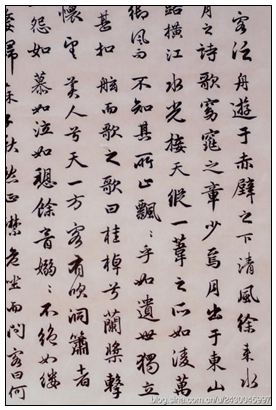 客泛舟遊于赤壁之下清風徐来水
月之詩歌窈窕之章少焉月出于東山
露橫江水光接天縱一葦之所如凌萬
御風而不知其所止飄〻乎如遺世獨立
甚扣舷而歌之歌曰桂棹兮蘭槳擊
懷望美人兮天一方客有吹洞簫者
怨如慕如泣如聽餘音嫋〻不絕如縷
婦蘇子愀然正襟危坐而問客曰何
blog.sina.com.cn/u/2430045997